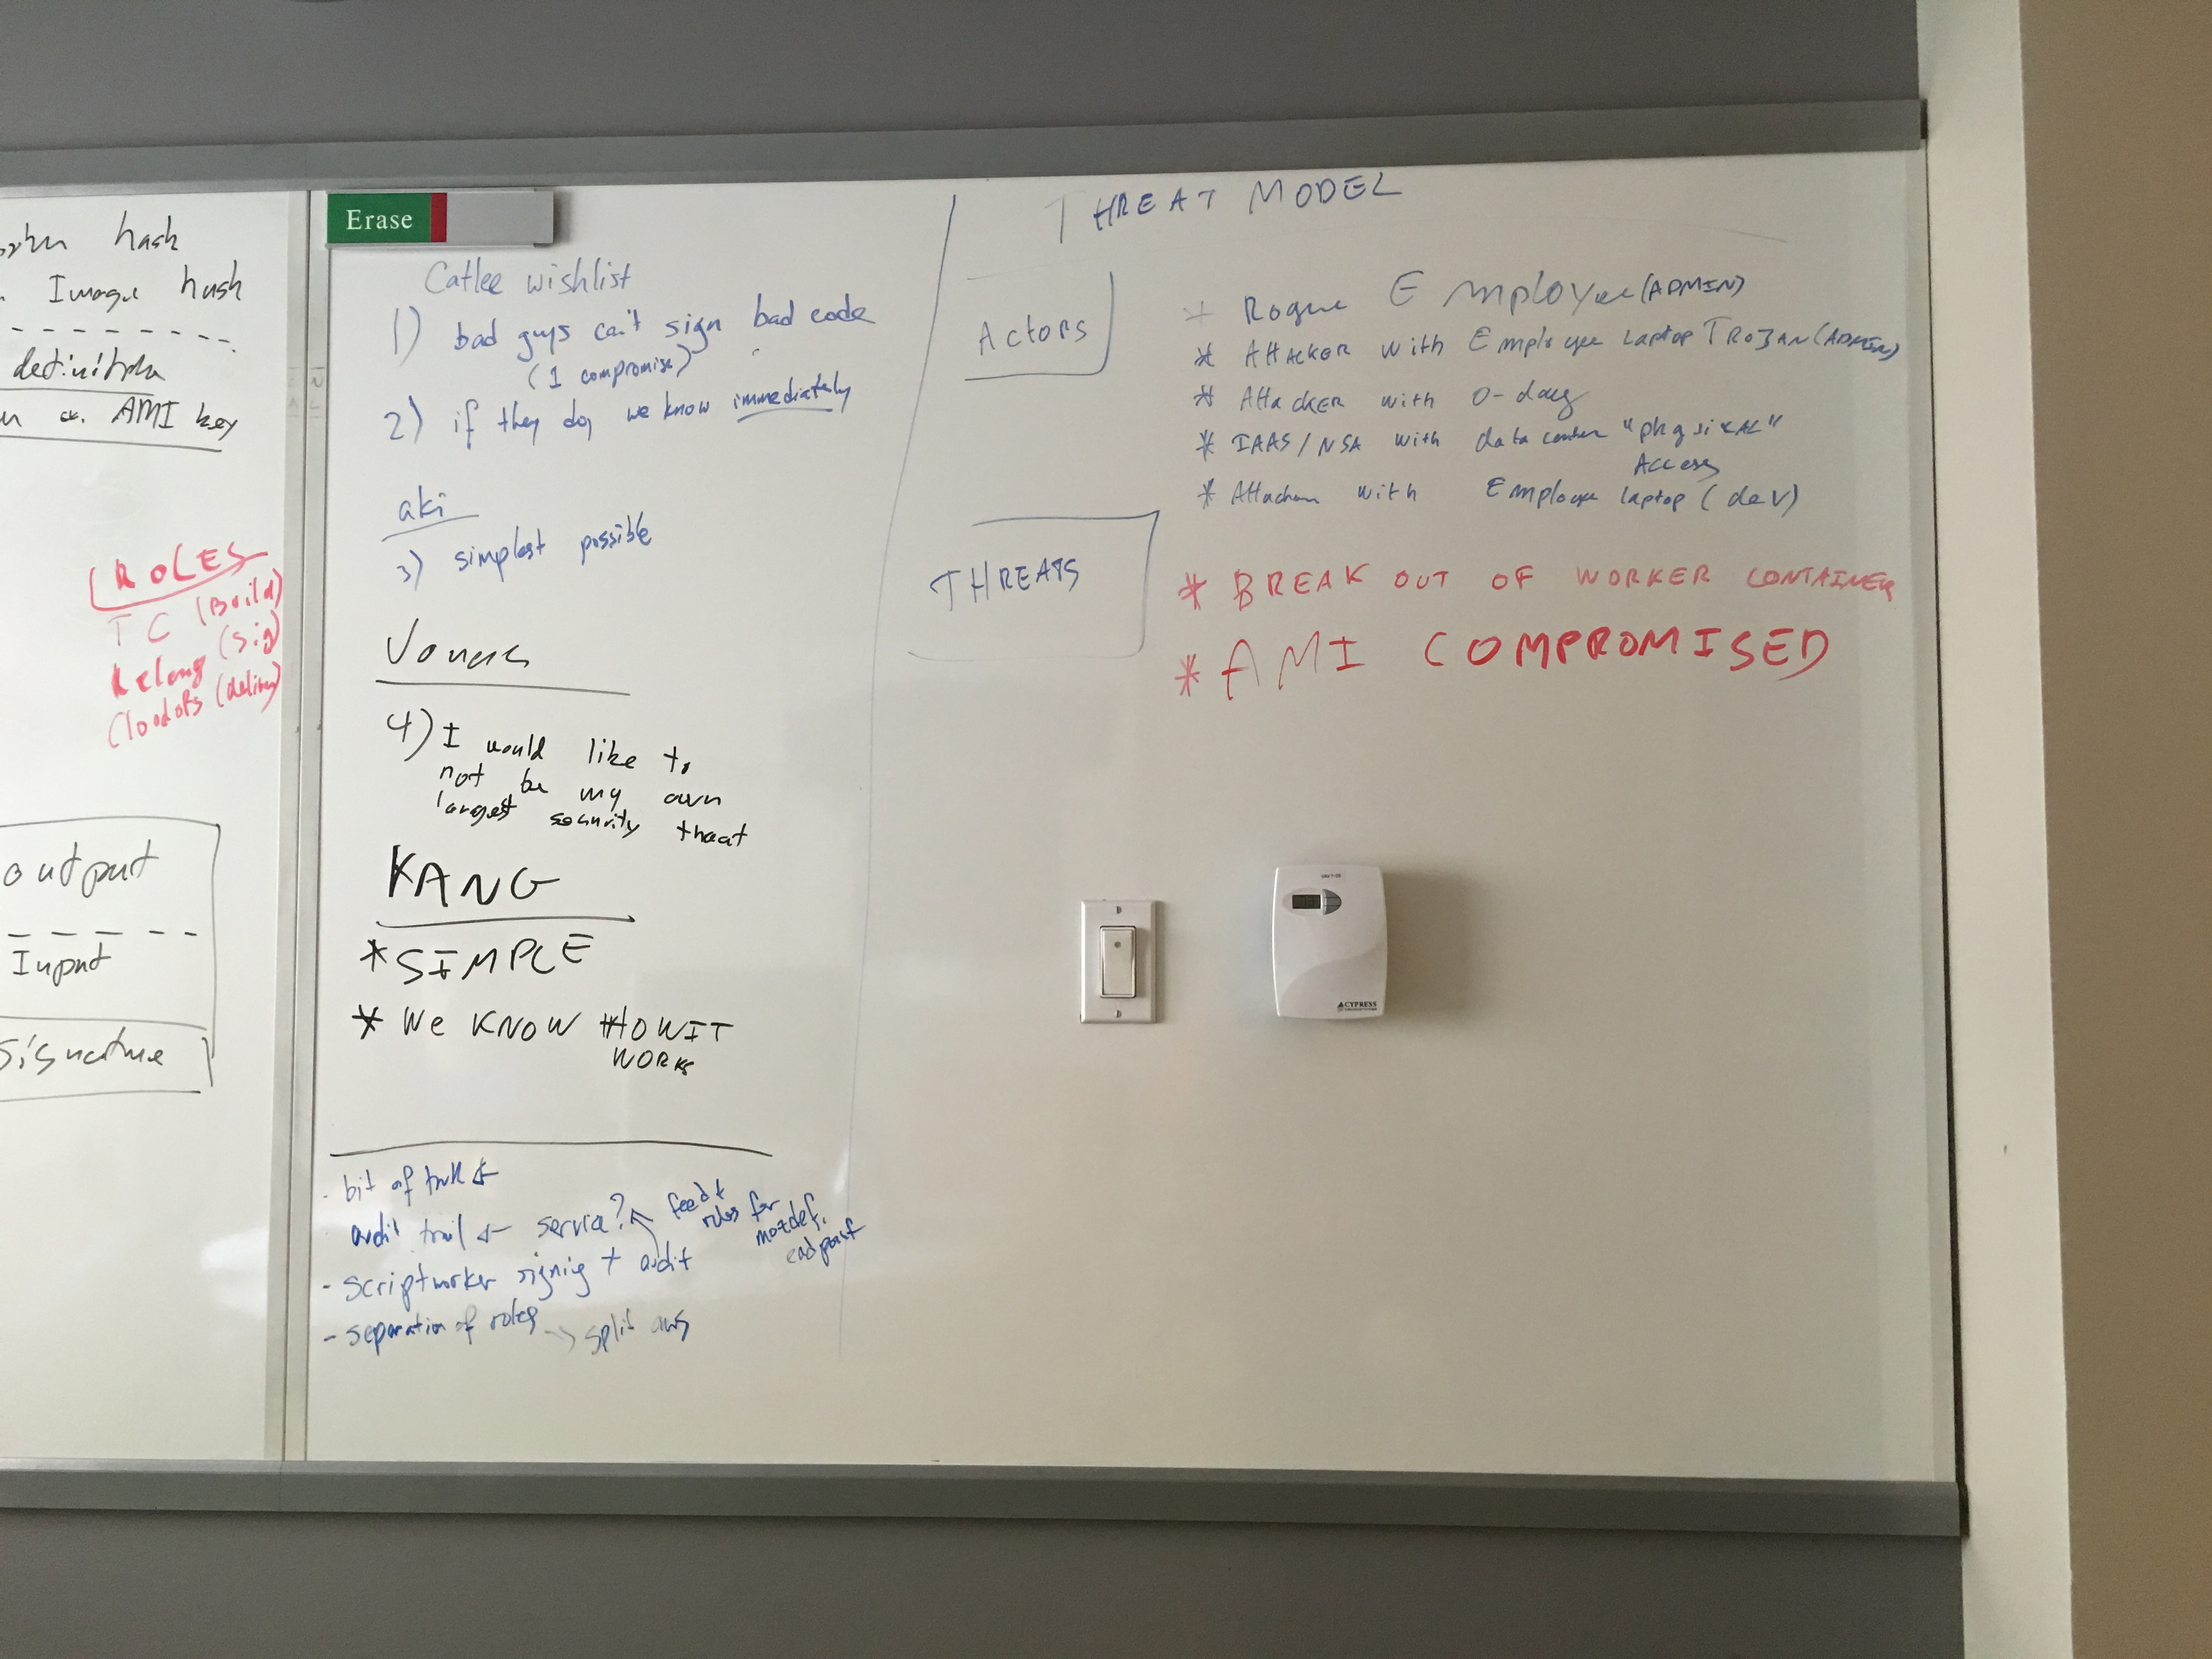 hash
Image hash
definition
AMI key
ROLES
TC (Build)
Releng (sig)
Cloudops (delivery)
output
Input
Signature
Erase
Catlee wishlist
1) bad guys can't sign bad code
(1 compromise)
2) if they do, we know immediately
aki
3) simplest possible
4) I would like to
not be my own
largest security threat
KANG
* SIMPLE
* WE KNOW HOW IT
WORKS
- bit of
audit trail ← service? ← feed +
rules for
mozdef.
endpoint
- scriptworker signing + audit
- separation of roles → split aws
THREAT MODEL
Actors
* Rogue Employee (ADMIN)
* Attacker with Employee laptop TROJAN (ADMIN)
* Attacker with 0-day
* IAAS/NSA with data center "physical"
Access
* Attacker with Employee laptop (dev)
THREATS
* BREAK OUT OF WORKER CONTAINER
* AMI COMPROMISED
CYPRESS